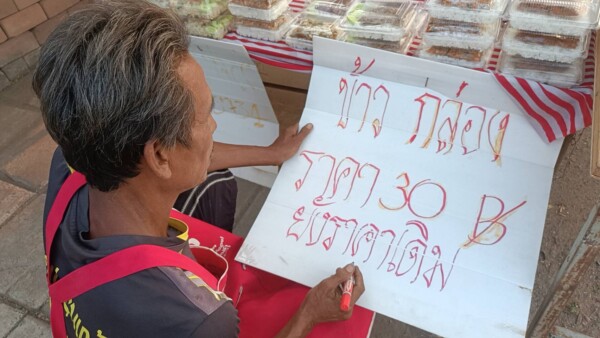 ข้าว กล่อง
ราคา 30 ฿
ยังราคาเดิม